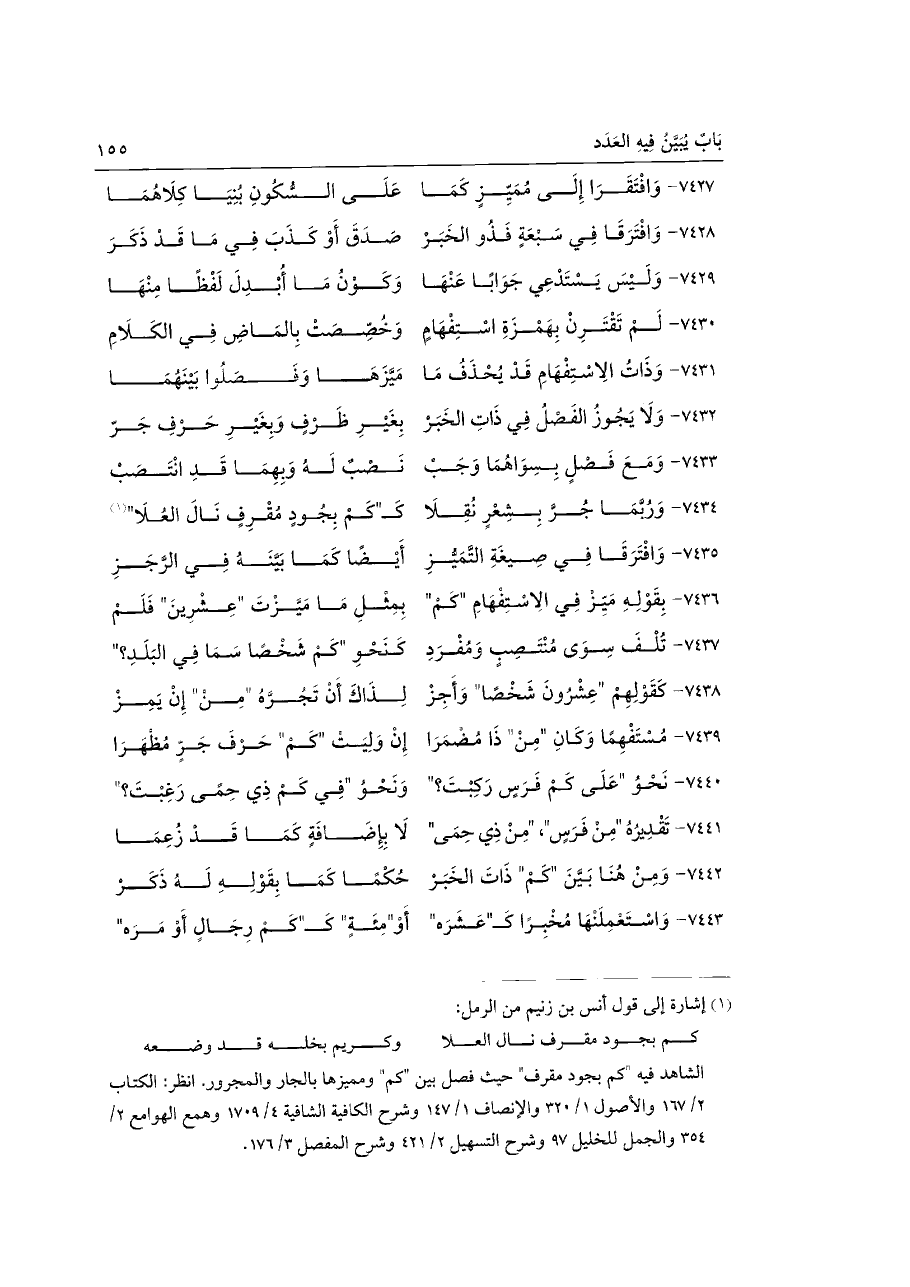 بَابٌ يُبَيَّنُ فِيهِ العَدَد ١٥٥
٧٤٢٧- وَافْتَقَرَا إِلَى مُمَيِّزٍ كَمَا عَلَى السُّكُونِ بُنِيَا كِلَاهُمَا
٧٤٢٨- وَافْتَرَقَا فِي سَبْعَةٍ فَذُو الخَبَرْ صَدَقَ أَوْ كَذَبَ فِي مَا قَدْ ذَكَرَ
٧٤٢٩- وَلَيْسَ يَسْتَدْعِي جَوَابًا عَنْهَا وَكَوْنُ مَا أُبْدِلَ لَفْظًا مِنْهَا
٧٤٣٠- لَمْ تَقْتَرِنْ بِهَمْزَةِ اسْتِفْهَامِ وَخُصِّصَتْ بِالمَاضِ فِي الكَلَامِ
٧٤٣١- وَذَاتُ الِاسْتِفْهَامِ قَدْ يُحْذَفُ مَا مَيَّزَهَا وَفَصَلُوا بَيْنَهُمَا
٧٤٣٢- وَلَا يَجُوزُ الفَصْلُ فِي ذَاتِ الخَبَرْ بِغَيْرِ ظَرْفٍ وَبِغَيْرِ حَرْفِ جَرّ
٧٤٣٣- وَمَعَ فَصْلٍ بِسِوَاهُمَا وَجَبْ نَصْبٌ لَهُ وَبِهِمَا قَدِ انْتَصَبْ
٧٤٣٤- وَرُبَّمَا جُرَّ بِشِعْرٍ نُقِلَا كَـ"كَمْ بِجُودٍ مُقْرِفٍ نَالَ العُلَا"(١)
٧٤٣٥- وَافْتَرَقَا فِي صِيغَةِ التَّمَيُّزِ أَيْضًا كَمَا بَيَّنَهُ فِي الرَّجَزِ
٧٤٣٦- بِقَوْلِهِ مَيِّزْ فِي الِاسْتِفْهَامِ "كَمْ" بِمِثْلِ مَا مَيَّزْتَ "عِشْرِينَ" فَلَمْ
٧٤٣٧- تُلْفَ سِوَى مُنْتَصِبٍ وَمُفْرَدِ كَنَحْوِ "كَمْ شَخْصًا سَمَا فِي البَلَدِ؟"
٧٤٣٨- كَقَوْلِهِمْ "عِشْرُونَ شَخْصًا" وَأَجِزْ لِذَاكَ أَنْ تَجُرَّهُ "مِنْ" إِنْ يَمِزْ
٧٤٣٩- مُسْتَفْهِمًا وَكَانِ "مِنْ" ذَا مُضْمَرَا إِنْ وَلِيَتْ "كَمْ" حَرْفَ جَرٍّ مُظْهَرَا
٧٤٤٠- نَحْوُ "عَلَى كَمْ فَرَسٍ رَكِبْتَ؟" وَنَحْوُ "فِي كَمْ ذِي حِمًى رَغِبْتَ؟"
٧٤٤١- تَقْدِيرُهُ "مِنْ فَرَسٍ"، "مِنْ ذِي حِمَى" لَا بِإِضَافَةٍ كَمَا قَدْ زُعِمَا
٧٤٤٢- وَمِنْ هُنَا بَيَّنَ "كَمْ" ذَاتَ الخَبَرْ حُكْمًا كَمَا بِقَوْلِهِ لَهُ ذَكَرْ
٧٤٤٣- وَاسْتَعْمِلَنْهَا مُخْبِرًا كَـ"عَشَرَه" أَوْ"مِئَةٍ" كَـ"كَمْ رِجَالٍ أَوْ مَرَه"
(١) إشارة إلى قول أنس بن زنيم من الرمل:
كم بجود مقرف نال العلا وكريم بخله قد وضعه
الشاهد فيه "كم بجود مقرف" حيث فصل بين "كم" ومميزها بالجار والمجرور. انظر: الكتاب
٢/ ١٦٧ والأصول ١/ ٣٢٠ والإنصاف ١/ ١٤٧ وشرح الكافية الشافية ٤/ ١٧٠٩ وهمع الهوامع ٢/
٣٥٤ والجمل للخليل ٩٧ وشرح التسهيل ٢/ ٤٢١ وشرح المفصل ٣/ ١٧٦.